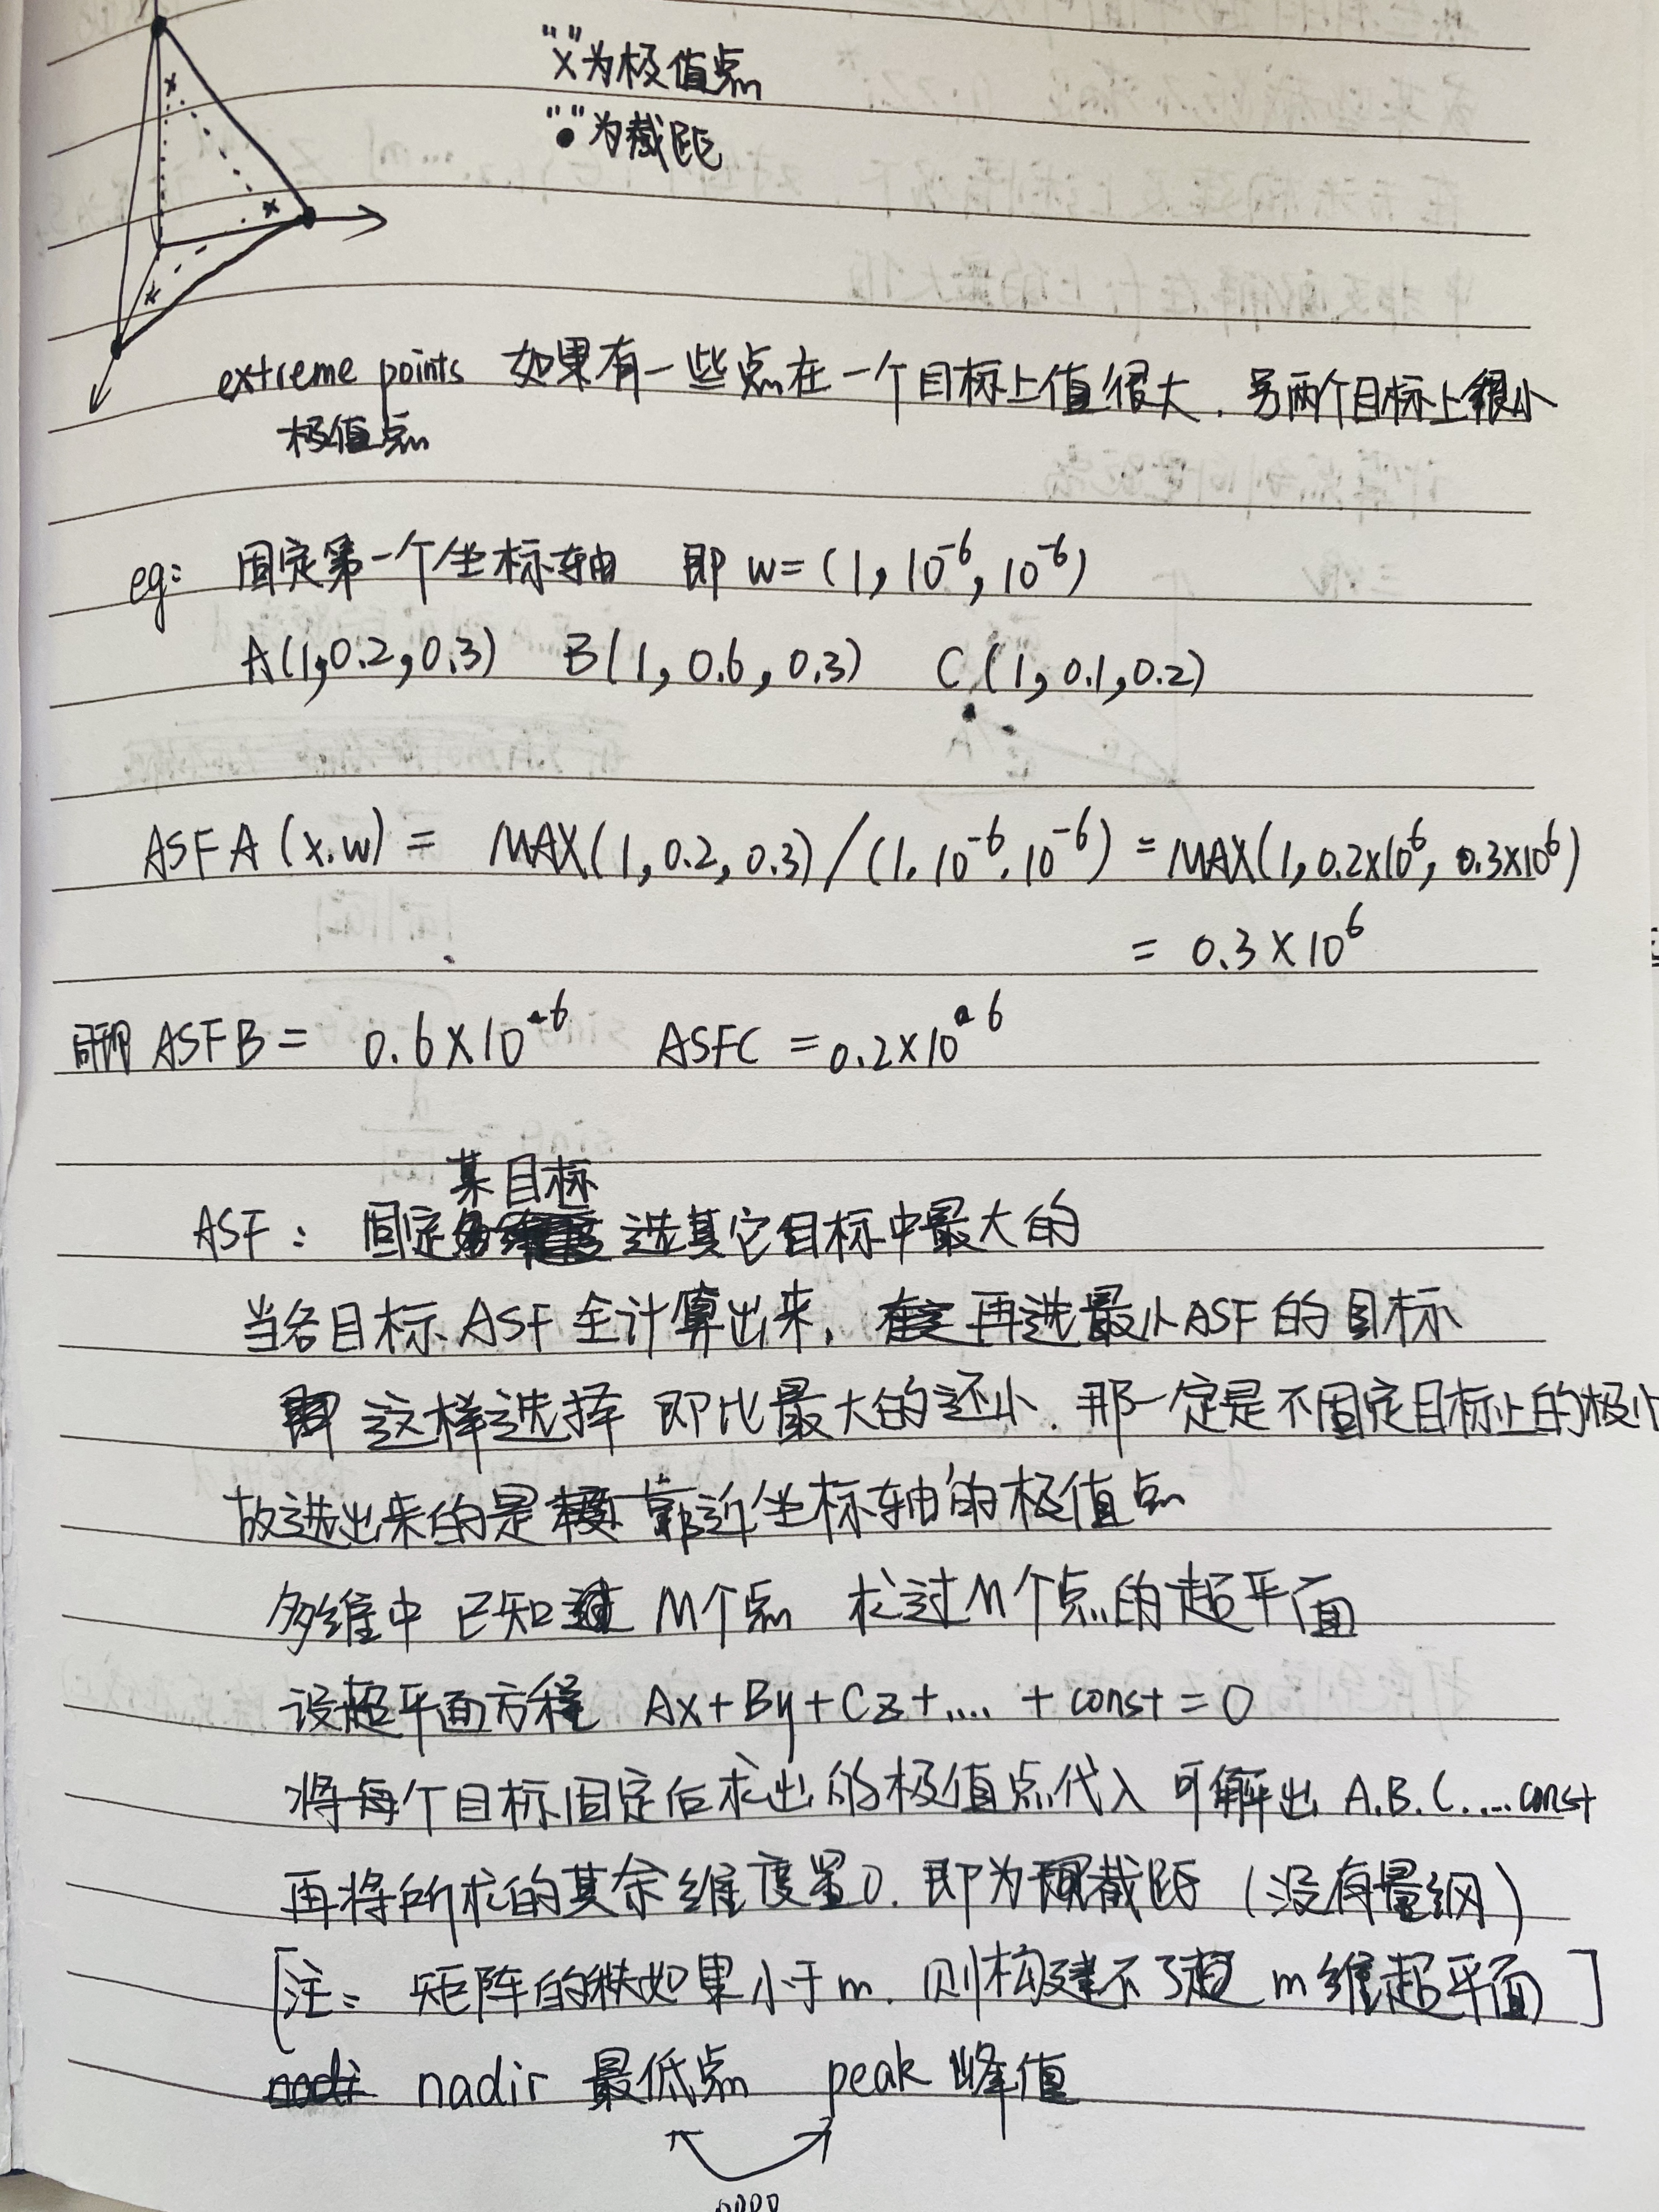 "x"为极值点
"●"为截距
extreme points 如果有一些点在一个目标上值很大，另两个目标上很小
极值点
eg: 固定第一个坐标轴 即 w=(1, 10⁻⁶, 10⁻⁶)
A(1,0.2,0.3) B(1, 0.6, 0.3) C(1, 0.1, 0.2)
ASF A (x.w) = MAX(1, 0.2, 0.3) / (1. 10⁻⁶. 10⁻⁶) = MAX(1, 0.2×10⁶, 0.3×10⁶)
= 0.3 × 10⁶
同理 ASF B = 0.6 × 10⁶ ASFC = 0.2×10⁶
某目标
ASF: 固定 选其它目标中最大的
当各目标 ASF 全计算出来, 再选最小ASF的目标
这样选择 即比最大的还小. 那一定是不固定目标上的极小
故选出来的是 靠近坐标轴的极值点
多维中 已知 M个点 求过M个点的超平面
设超平面方程 Ax+By+Cz+.... + const = 0
将每个目标固定后求出的极值点代入 可解出 A.B.C.....const
再将所求的其余维度置0. 即为截距 (没有量纲)
[注: 矩阵的秩如果小于m. 则构建不了 m维超平面]
nadir 最低点 peak 峰值